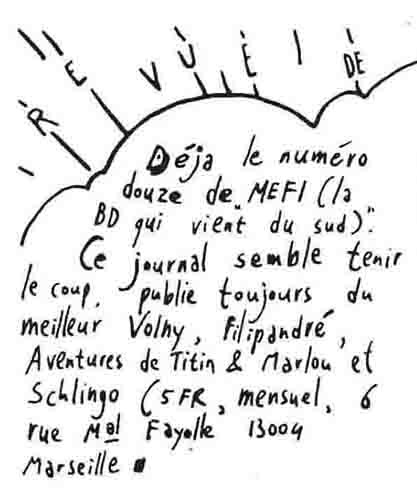 REVUE DE
Déja le numéro
douze de "MEFI (la
BD qui vient du sud)".
Ce journal semble tenir
le coup, publie toujours du
meilleur Volny, Filipandré,
Aventures de Titin & Marlou et
Schlingo (5FR, mensuel, 6
rue Mal Fayolle 13004
Marseille